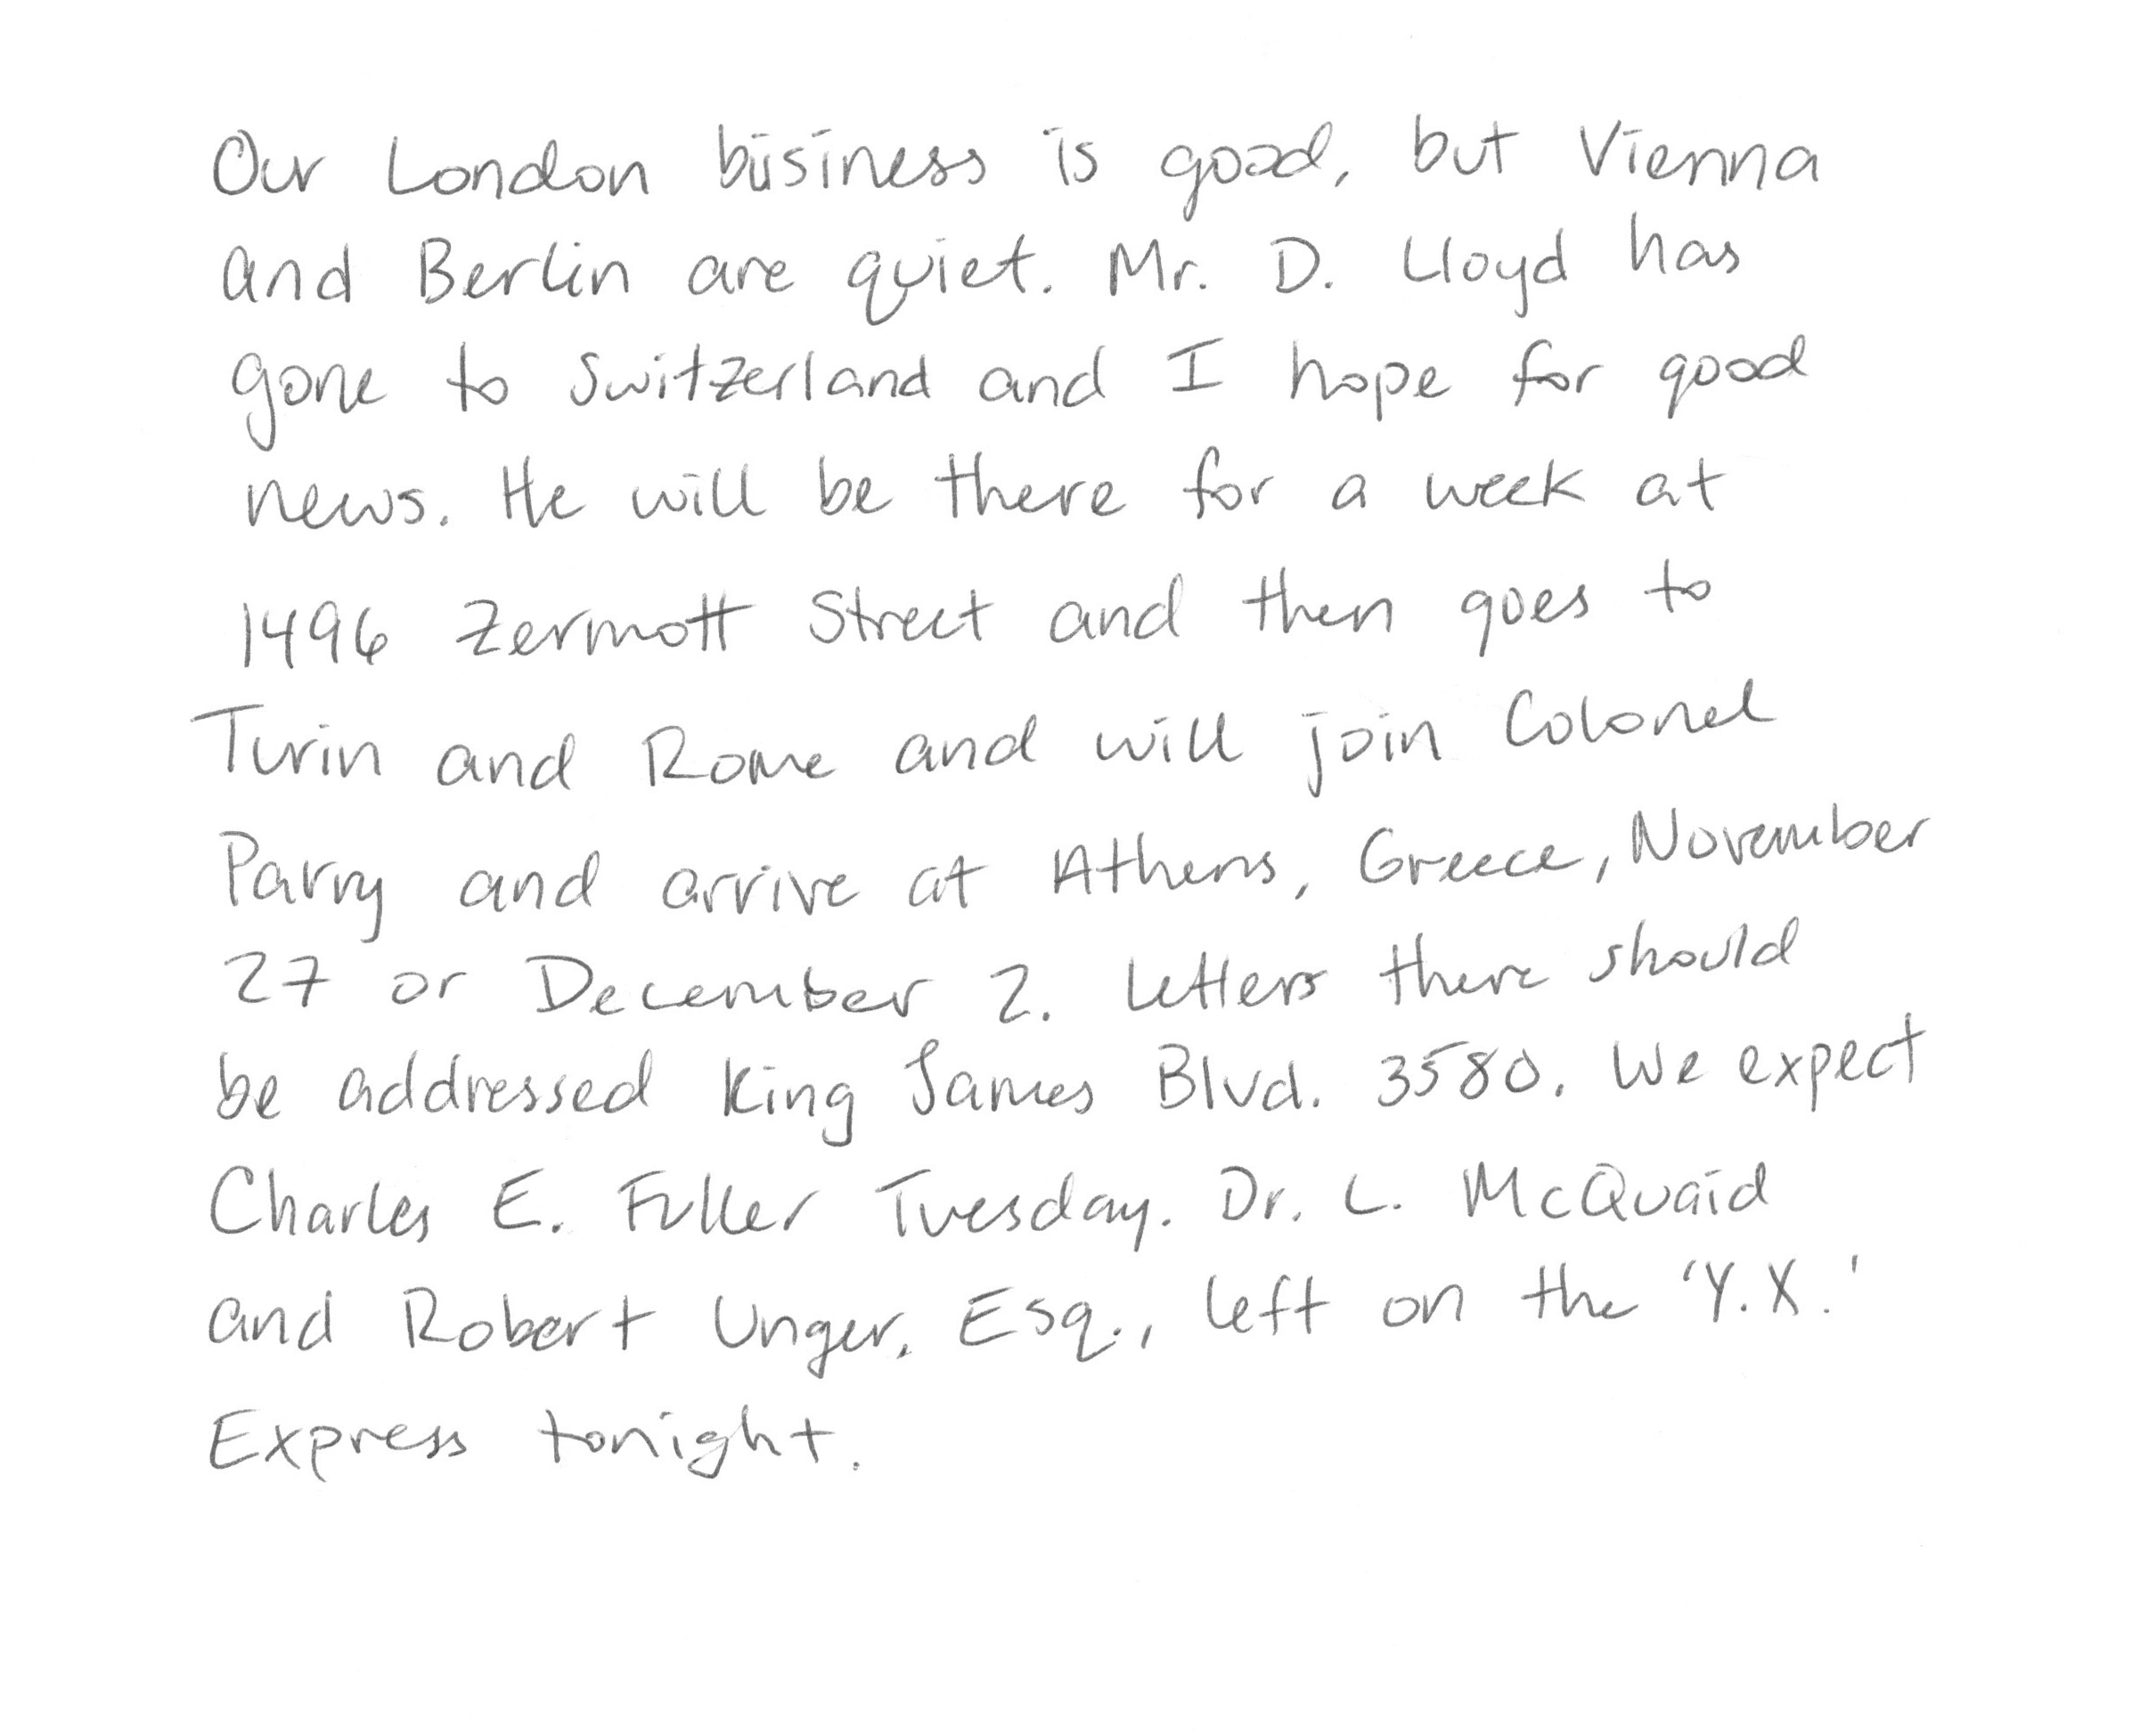 Our London business is good, but Vienna
and Berlin are quiet. Mr. D. Lloyd has
gone to Switzerland and I hope for good
news. He will be there for a week at
1496 Zermott Street and then goes to
Turin and Rome and will join Colonel
Parry and arrive at Athens, Greece, November
27 or December 2. Letters there should
be addressed King James Blvd. 3580. We expect
Charles E. Fuller Tuesday. Dr. L. McQuaid
and Robert Unger, Esq., left on the 'Y.X.'
Express tonight.